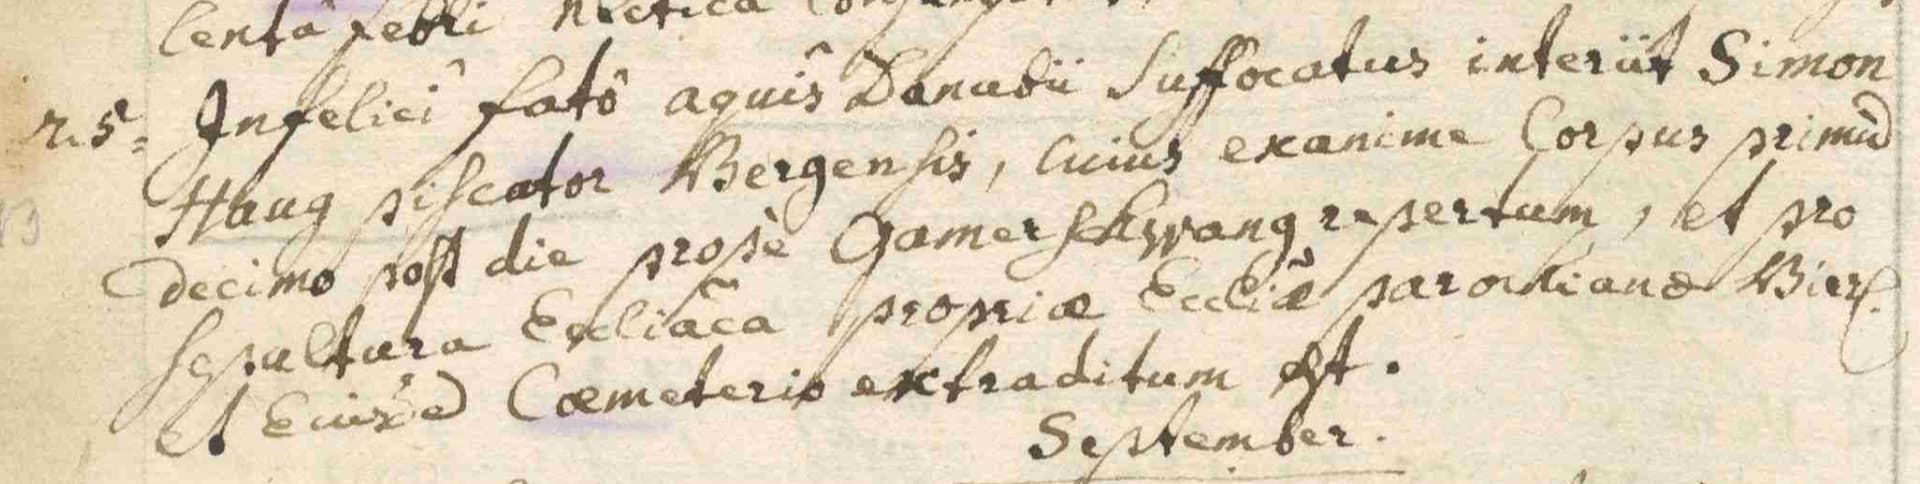 lentâ febri hectica
25. Infelici fatô aquis Danubii suffocatus interiit Simon
Haug piscator Bergensis, cuius exanime Corpus primũ
decimo post die propè Gamerschwang repertum, et pro
sepultura Eccliãca propriæ Eccliæ parochianæ Bier.
et Eiusd Cœmeterio extraditum est.
September.